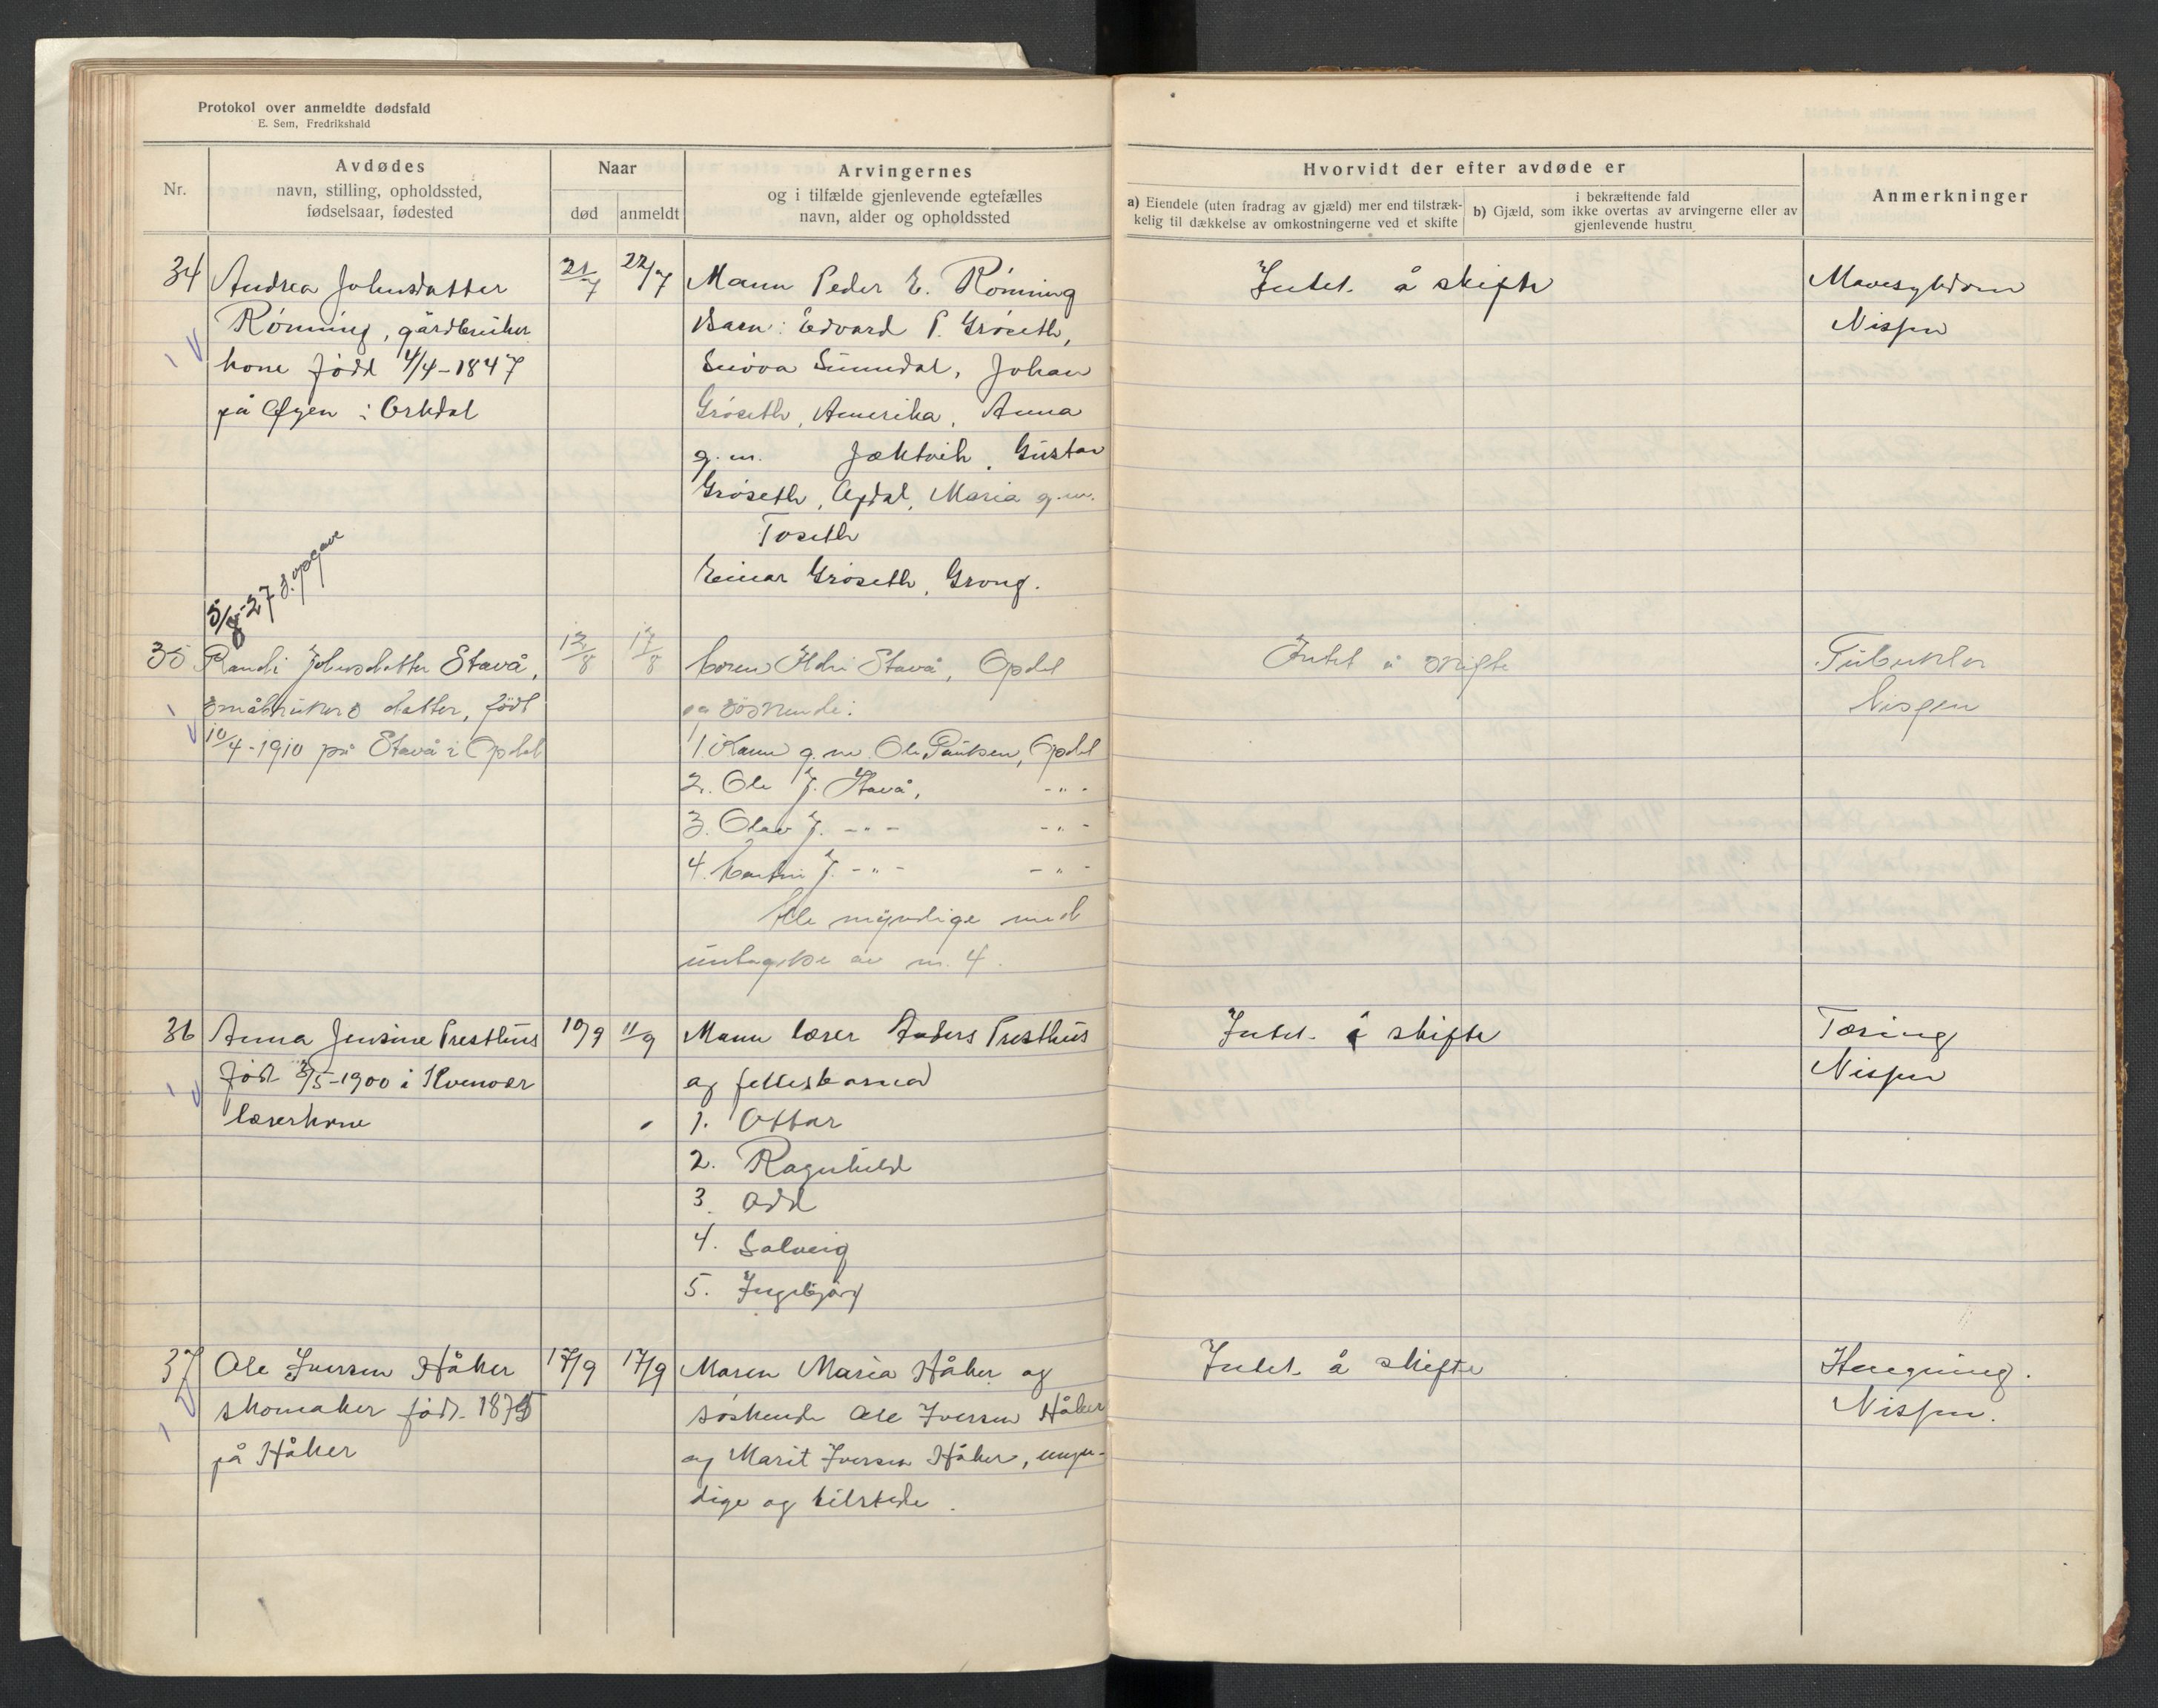 Protokol over anmeldte dødsfald
E. Sem, Fredrikshald
Nr.
Avdødes
navn, stilling, opholdssted,
fødselsaar, fødested
Naar
død
anmeldt
Arvingernes
og i tilfælde gjenlevende egtefælles
navn, alder og opholdssted
Hvorvidt der efter avdøde er
a) Eiendele (uten fradrag av gjæld) mer end tilstræk-
kelig til dækkelse av omkostningerne ved et skifte
i bekræftende fald
b) Gjæld, som ikke overtas av arvingerne eller av
gjenlevende hustru
Anmerkninger
34
Andrea Johnsdatter
Rönning, gårdbruker
kone född 4/4-1847
på Øyen i Orkdal
21/7
22/7
Mann Peder E. Rönning
Barn: Edvard P. Gröseth,
Sunndal, Johan
Gröseth, Amerika, Anna
g.m. Jæktvik, Gustav
Gröseth, Opdal, Maria g.m.
Toseth
Einar Gröseth, Grong.
Intet å skifte
Mavesykdom
Nisjen
5/8-27 d.opgave
35
Randi Johnsdatter Stavå,
småbrukers datter, född
10/4-1910 på Stavå i Opdal
12/8
17/8
Moren Ildri Stavå, Opdal
og söskende:
1. Kari g.m. Ole Paulsen, Opdal
2. Ole J. Stavå, - " -
3. Olav J. - " - - " -
4. J. - " - - " -
Alle myndige med
untagelse av nr. 4.
Intet å skifte
Tuberkler
Nisjen
36
Anna Jensine Presthus
född 3/5-1900 i Kvenvær
lærerkone
10/9
11/9
Mann lærer Anders Presthus
og fellesbarna
1. Ottar
2. Ragnhild
3. Odd
4. Solveig
5. Ingebjörg
Intet å skifte
Tæring
Nisjen
37
Ole Iversen Håker
skomaker född 1875
på Håker
17/9
17/9
Moren Maria Håker og
söskende Ole Iversen Håker
og Marit Iversen Håker, myn-
dige og tilstede.
Intet å skifte
Hengning.
Nisjen.